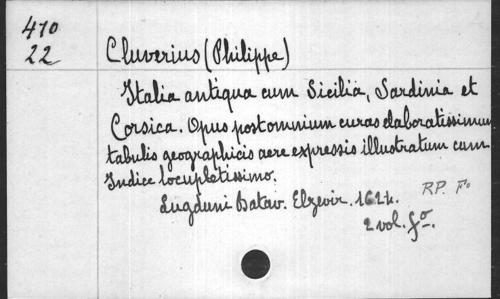 470
22
Cluverius (Philippe)
Italia antiqua cum Sicilia, Sardinia et
Corsica. Opus post omnium curas elaboratissimum
tabulis geographicis aere expressis illustratum cum
Indice locupletissimo.
Lugduni Batav. Elzevir. 1624.
RP. Fo
2 vol. fo.